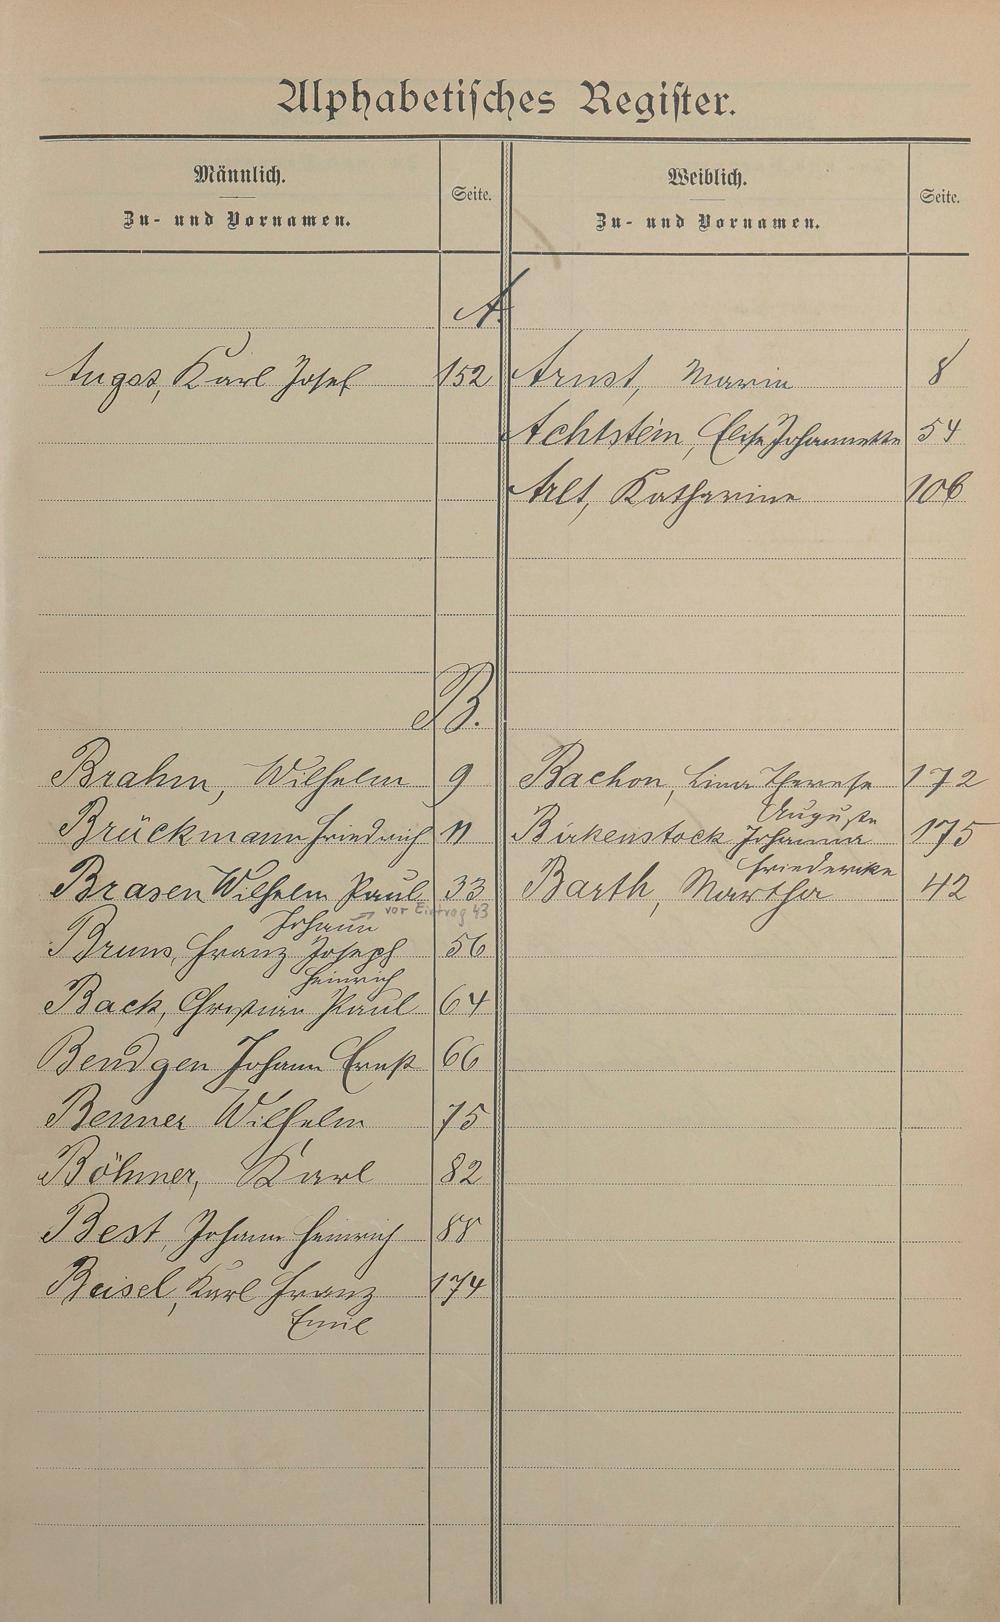 Alphabetisches Register.
Männlich.
Zu- und Vornamen.
Seite.
Weiblich.
Zu- und Vornamen.
Seite.
A.
Angst, Karl Josef 152
Arnst, Maria 8
Achtstein, Elise Johannette 54
Arlt, Katharina 106
B.
Brahm, Wilhelm 9
Bachon, Lina Therese 172
Auguste
Brückmann Friedrich 11
Birkenstock Johanna 175
Friederike
Brasen Wilhelm Paul 33
Barth, Martha 42
Johann
vor Eintrag 43
Bruns, Franz Joseph 56
Heinrich
Back, Christian Paul 64
Bendgen Johann Ernst 66
Benner Wilhelm 75
Böhmer, Karl 82
Best, Johann Heinrich 88
Beisel, Karl Franz 174
Emil